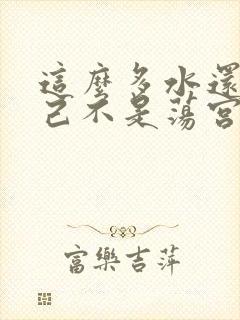 這麼多水還
己不是蕩宮
富樂吉萍